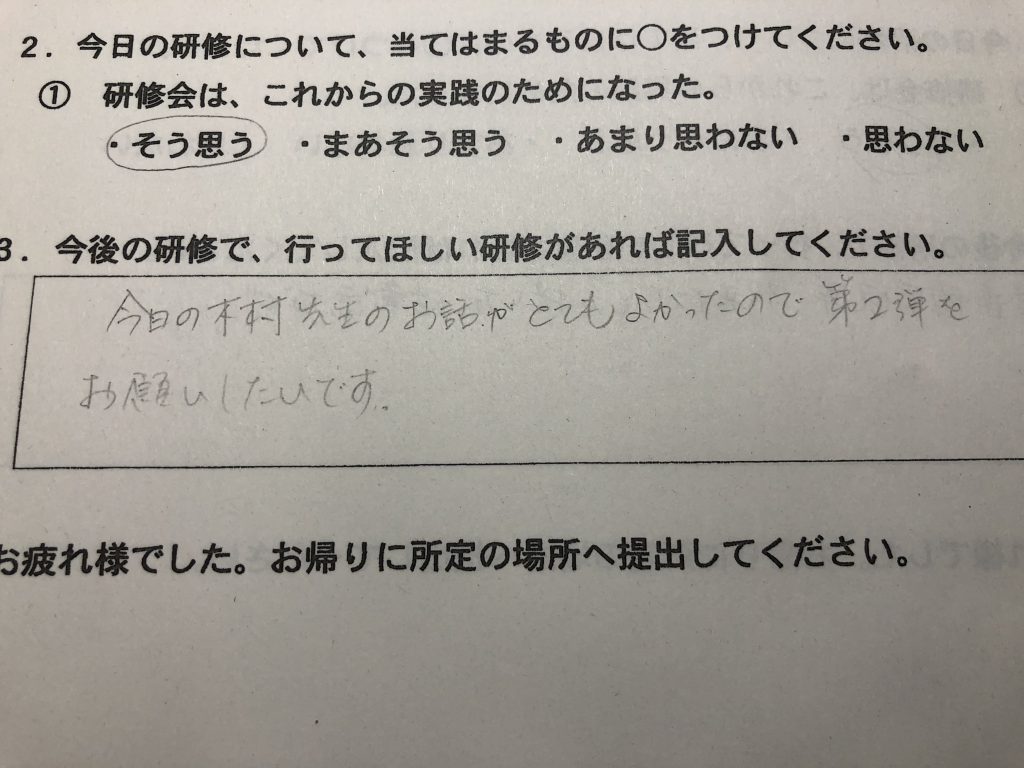 2．今日の研修について、当てはまるものに○をつけてください。
① 研修会は、これからの実践のためになった。
・そう思う ・まあそう思う ・あまり思わない ・思わない
3．今後の研修で、行ってほしい研修があれば記入してください。
今日の木村先生のお話がとてもよかったので第2弾を
お願いしたいです。
お疲れ様でした。お帰りに所定の場所へ提出してください。